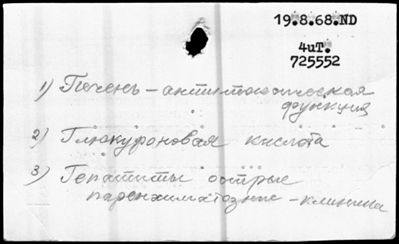 19.8.68.ND
4иТ.
725552
1) Печень – антитоксическая
функция
2) Глюкуроновая кислота
3) Гепатиты острые
паренхиматозные – клиника